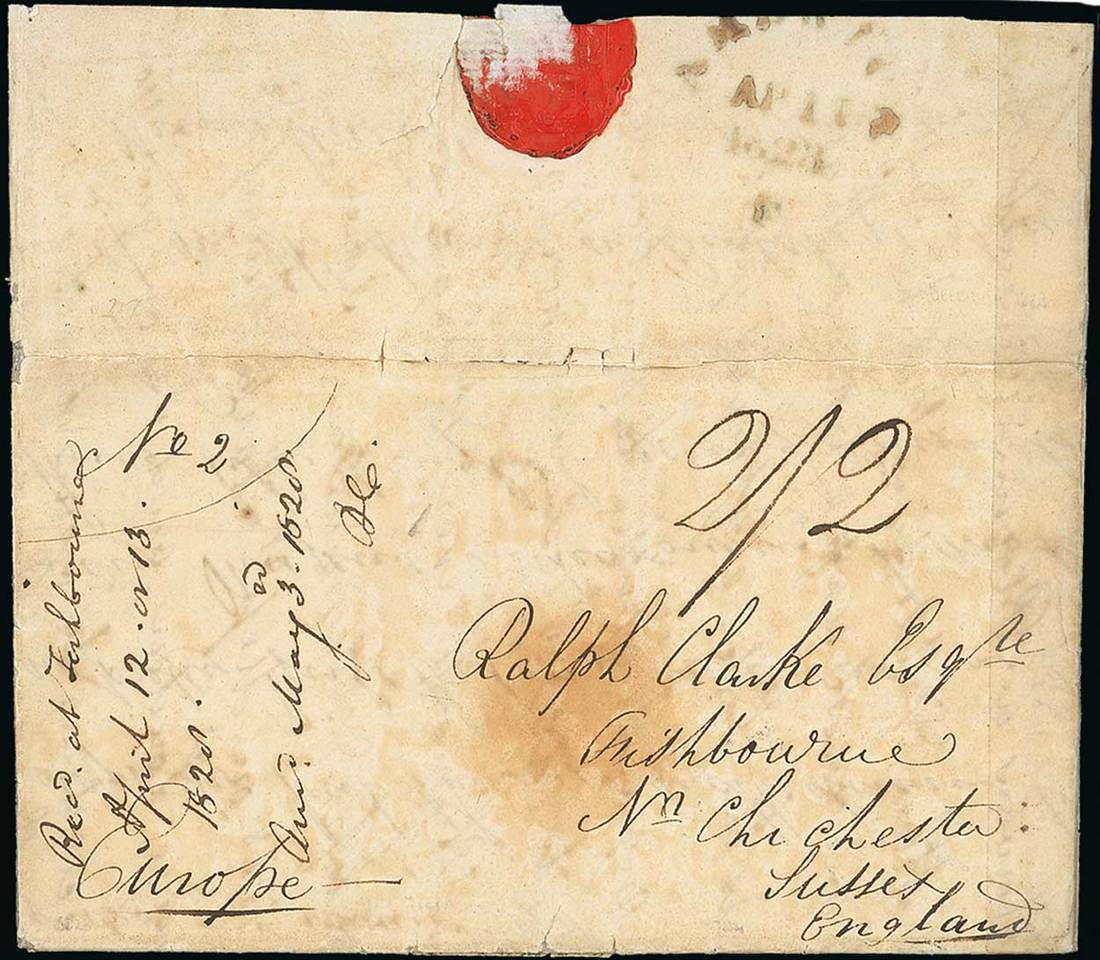 No 2
Recd. at Fishbourne
April 12. or 13.
1820.
Ansd. May 3.rd 1820
Europe —
2/2
Ralph Clarke Esqre
Fishbourne
Nr Chichester
Sussex
England